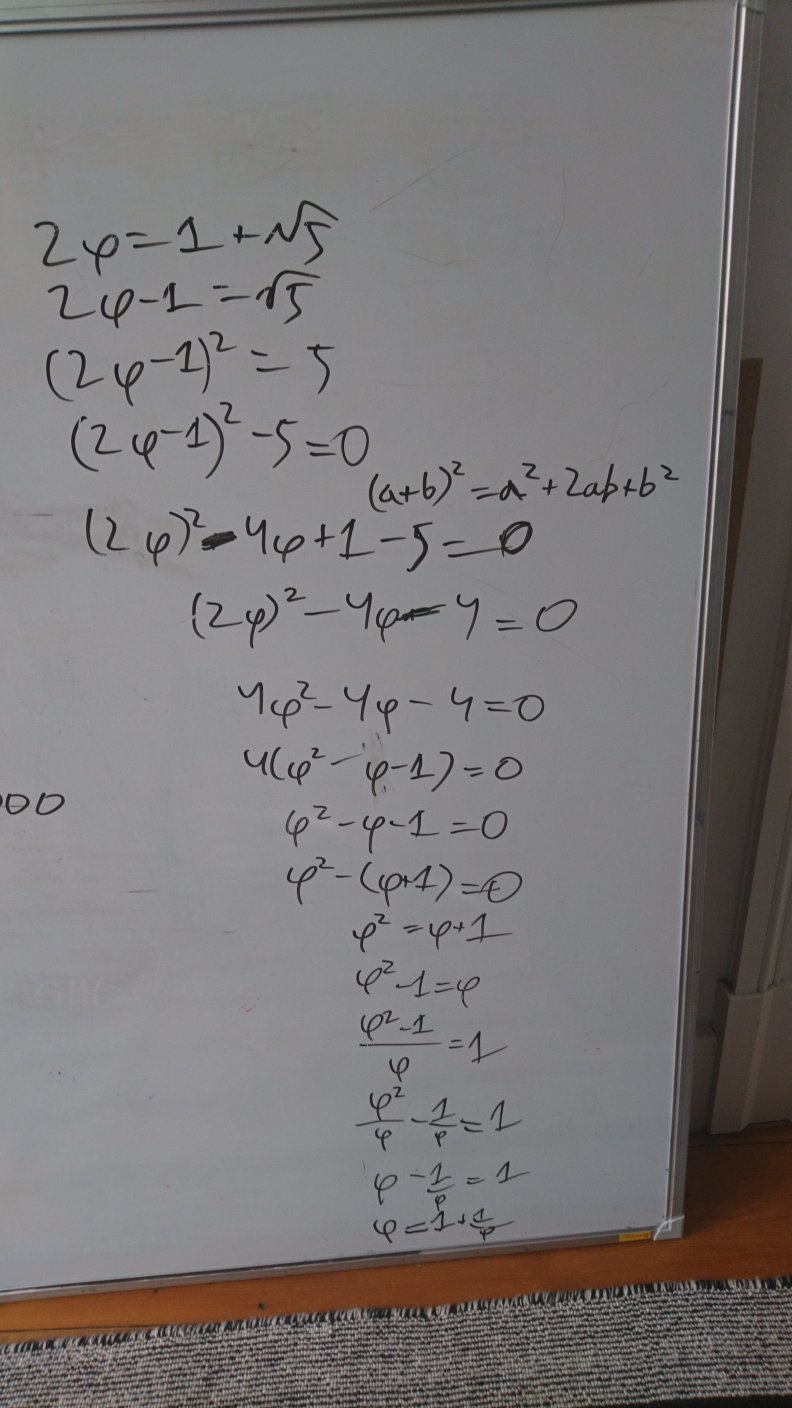 2φ=1+√5
2φ-1=√5
(2φ-1)²=5
(2φ-1)²-5=0
(a+b)²=a²+2ab+b²
(2φ)²-4φ+1-5=0
(2φ)²-4φ-4=0
4φ²-4φ-4=0
4(φ²-φ-1)=0
00
φ²-φ-1=0
φ²-(φ+1)=0
φ²=φ+1
φ²-1=φ
(φ²-1)/φ=1
φ²/φ-1/φ=1
φ-1/φ=1
φ=1+1/φ